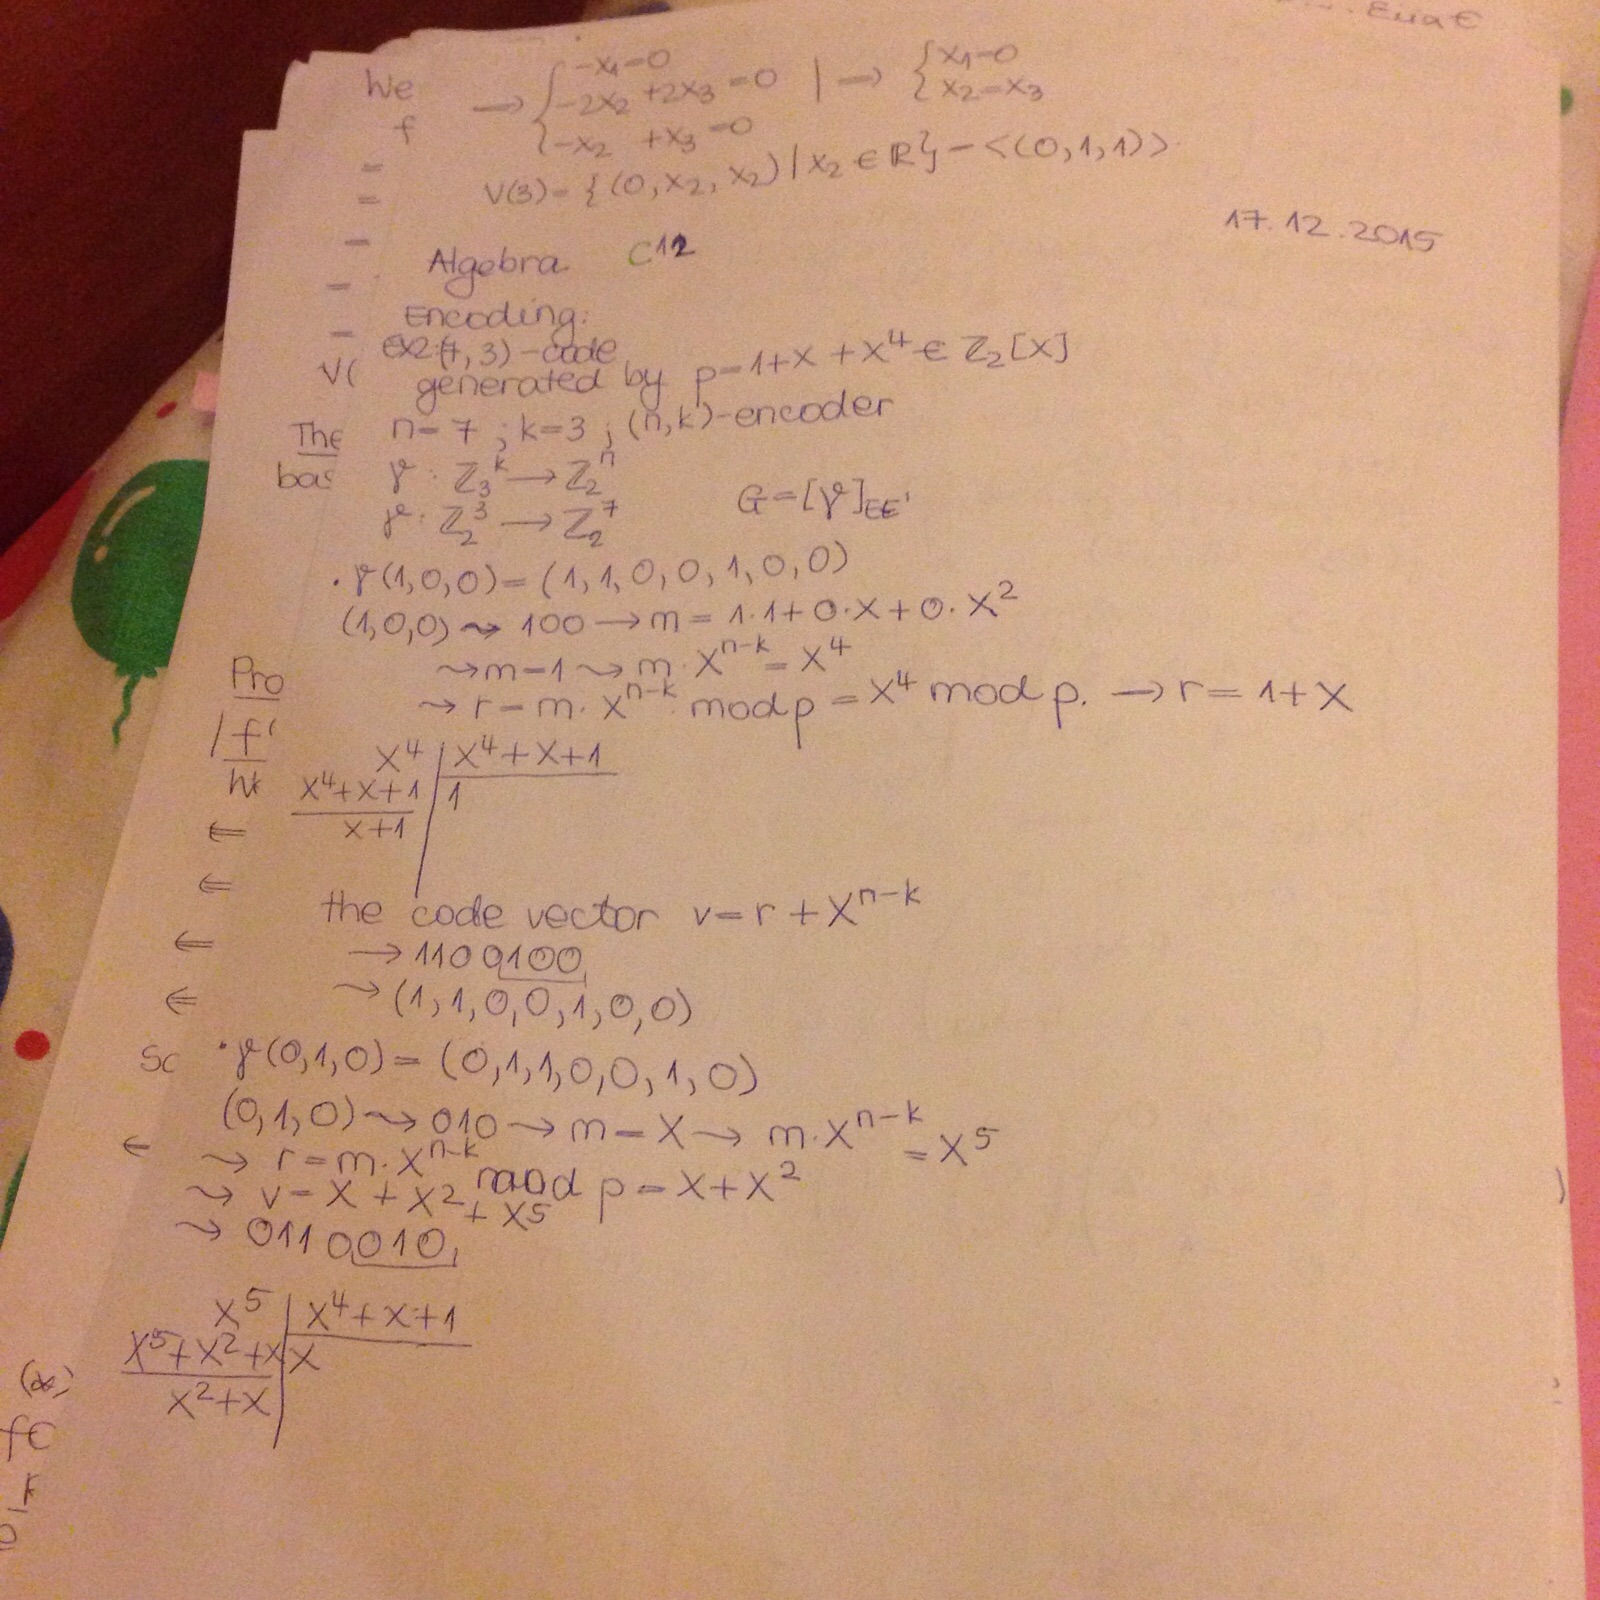 We
f
→ { -x1=0
-2x2 +2x3=0 | → { x1=0
x2=x3
-x2 +x3=0
V(3)={(0,x2,x2)|x2∈R}=<(0,1,1)>
17.12.2015
Algebra C12
Encoding:
ex2:(7,3)-code
V(
generated by p=1+X+X^4∈Z_2[X]
The
n=7; k=3; (n,k)-encoder
bas
γ: Z_3^k → Z_2^n
G=[γ]_EE'
γ: Z_2^3 → Z_2^7
·γ(1,0,0)=(1,1,0,0,1,0,0)
(1,0,0)⇝100→m=1·1+0·X+0·X^2
Pro
⇝m=1⇝m·X^n-k=X^4
⇝r=m·X^n-k mod p=X^4 mod p. →r=1+X
X^4 | X^4+X+1
X^4+X+1 | 1
X+1
⇐
⇐
the code vector v=r+X^n-k
⇐
→1100100
⇐
⇝(1,1,0,0,1,0,0)
So
·γ(0,1,0)=(0,1,1,0,0,1,0)
(0,1,0)⇝010→m=X→m·X^n-k
=X^5
←
⇝r=m·X^n-k mod p=X+X^2
⇝v=X+X^2+X^5
⇝0110010
X^5 | X^4+X+1
X^5+X^2+X | X
X^2+X